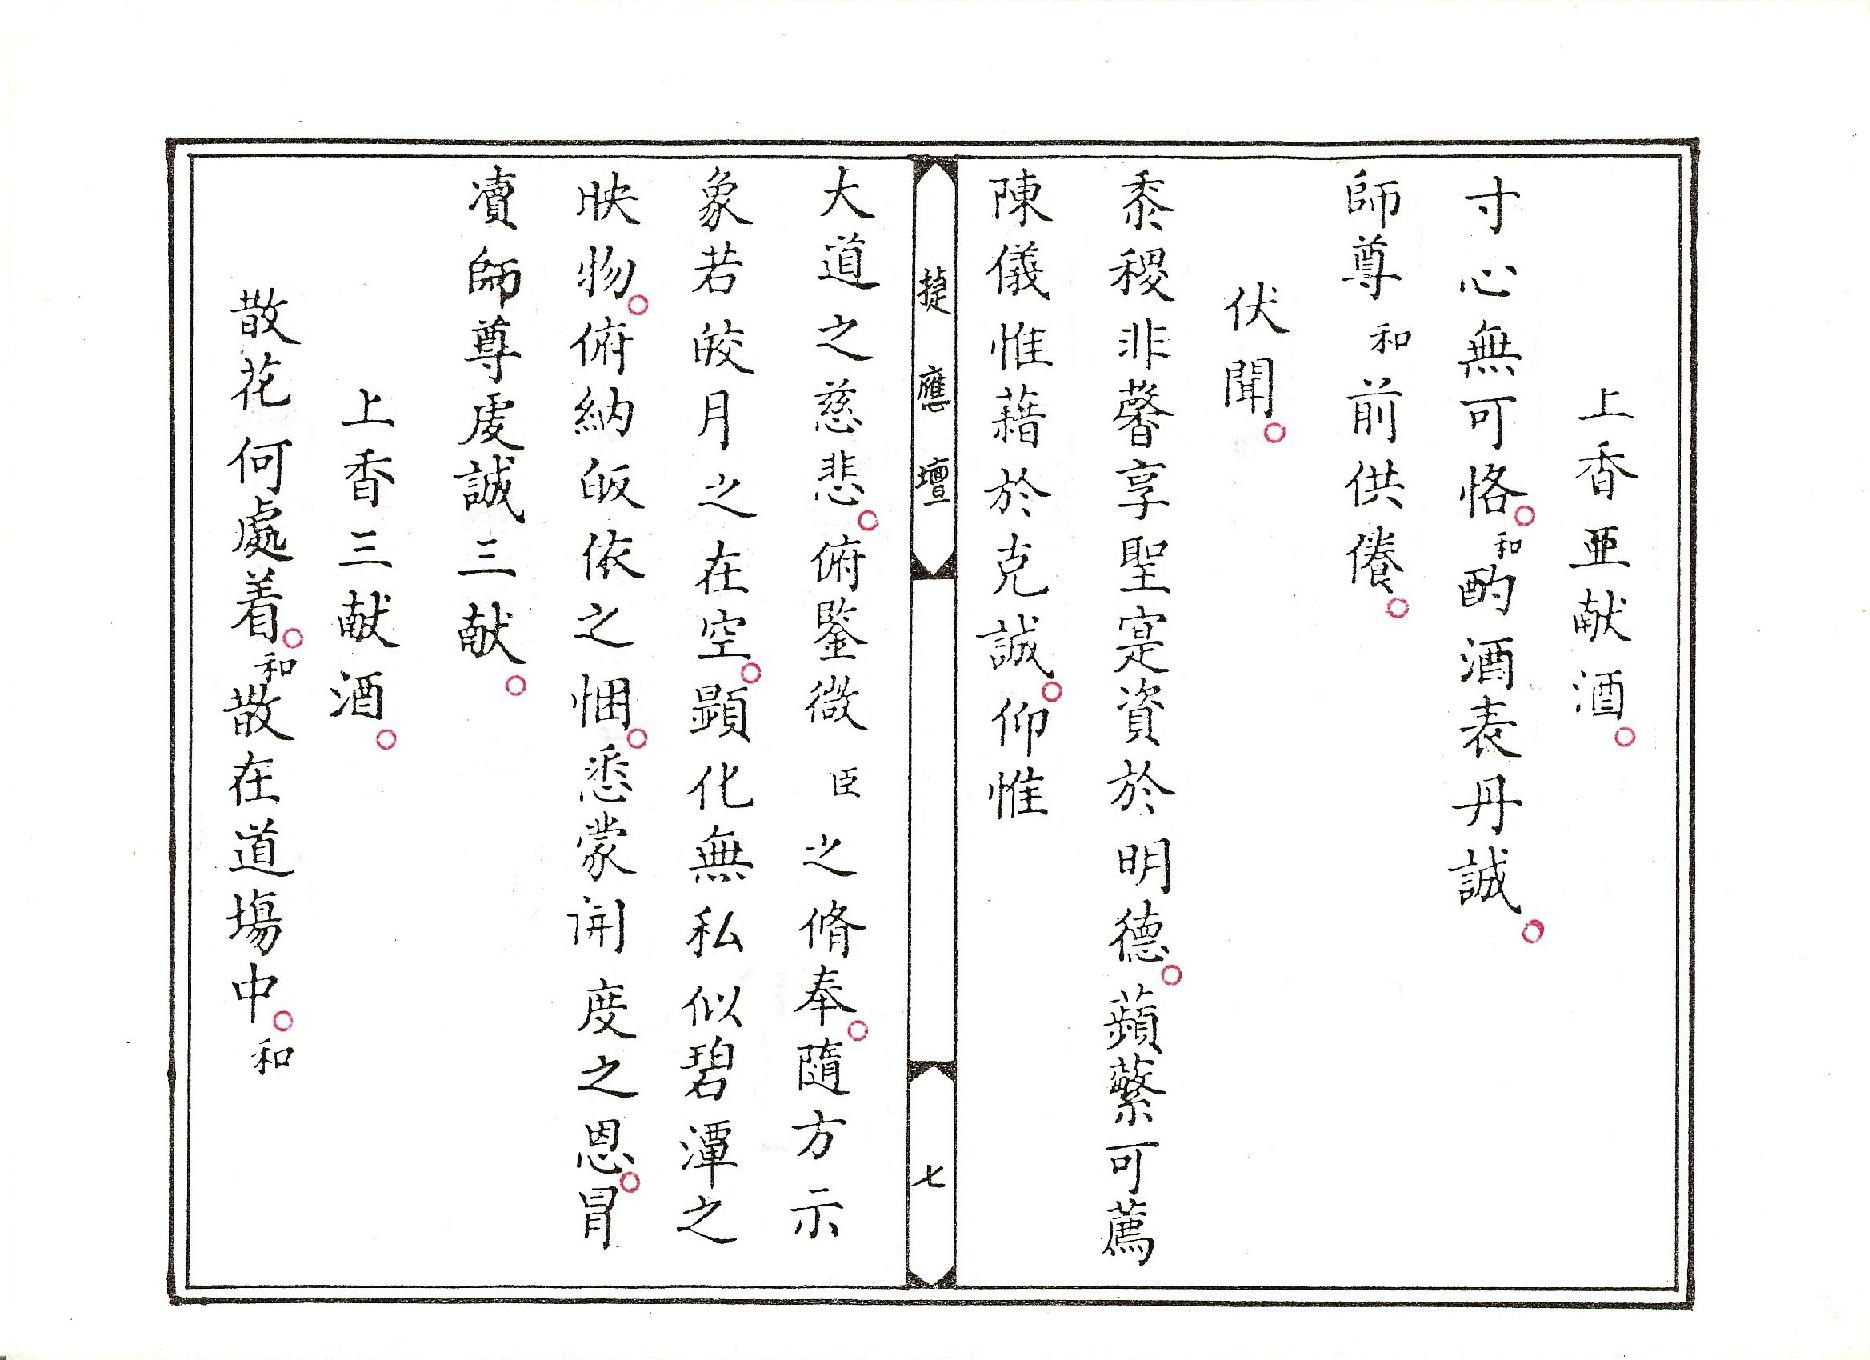 上香亜献酒。
寸心無可恪。和酌酒表丹誠。
師尊和前供養。
伏聞。
黍稷非馨享聖寔資於明德。蘋蘩可薦
陳儀惟藉於克誠。仰惟
捷應壇
七
大道之慈悲。俯鑒微臣之脩奉。隨方示
象若皎月之在空。顕化無私似碧潭之
映物。俯納皈依之悃。悉蒙開度之恩。冒
凟師尊虔誠三献。
上香三献酒。
散花何處着。和散在道塲中。和